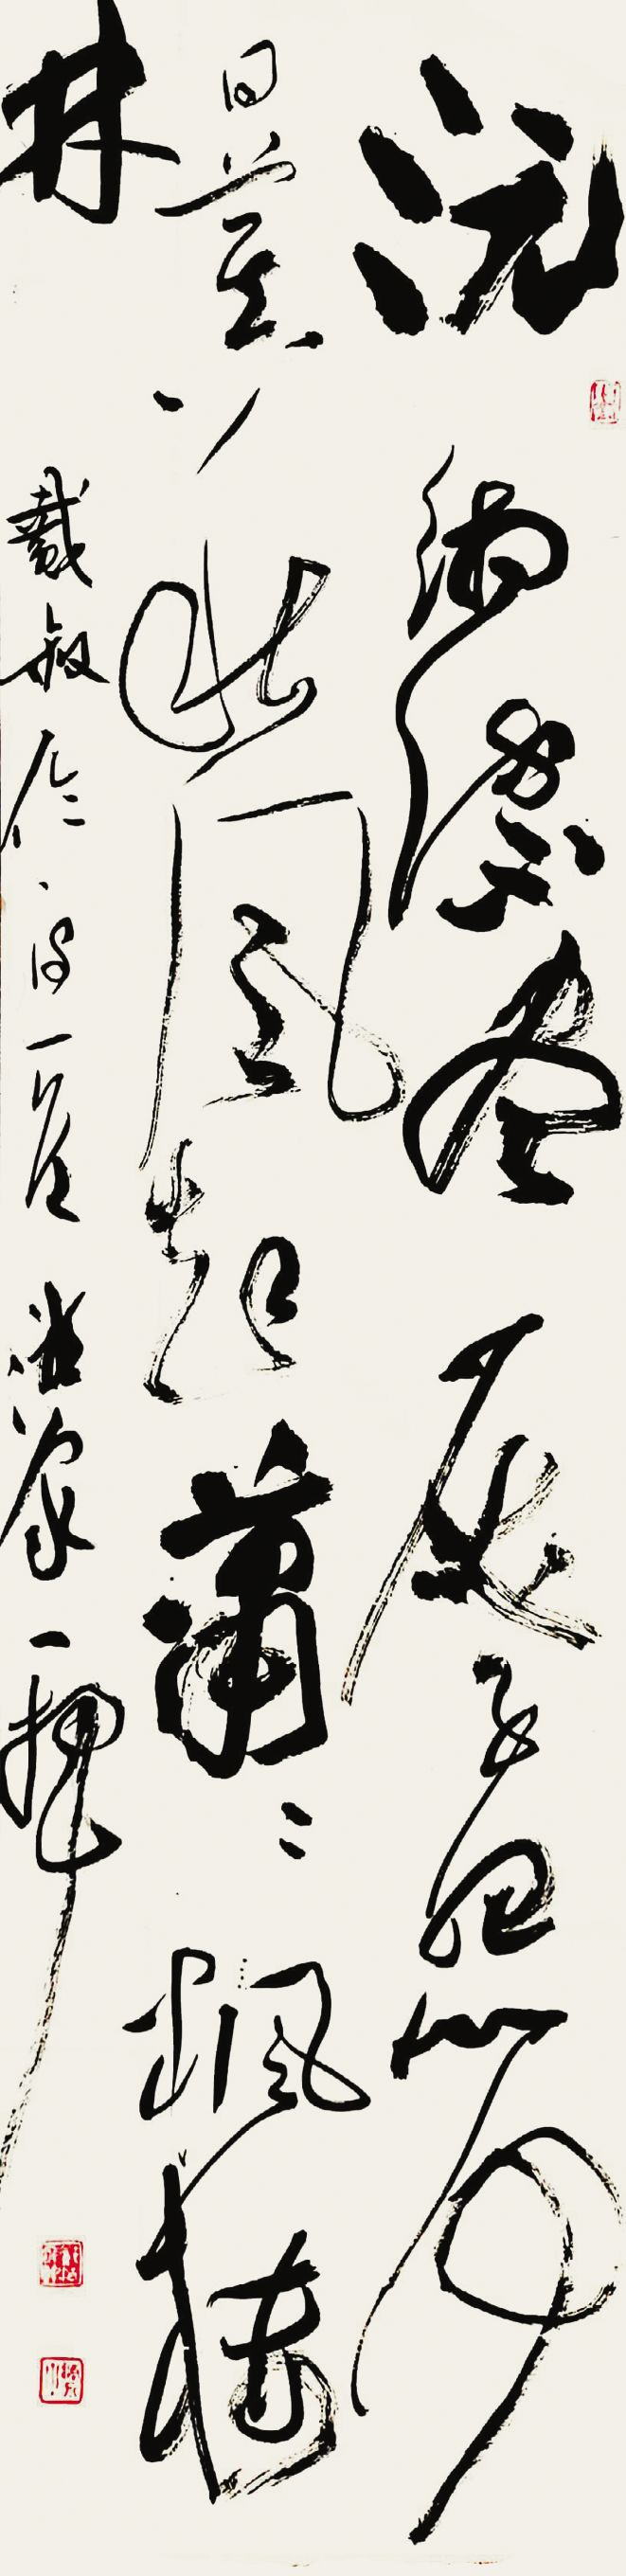 沅湘流不尽屈子怨何深
日暮秋风起萧〻枫树
林
戴叔伦诗一首